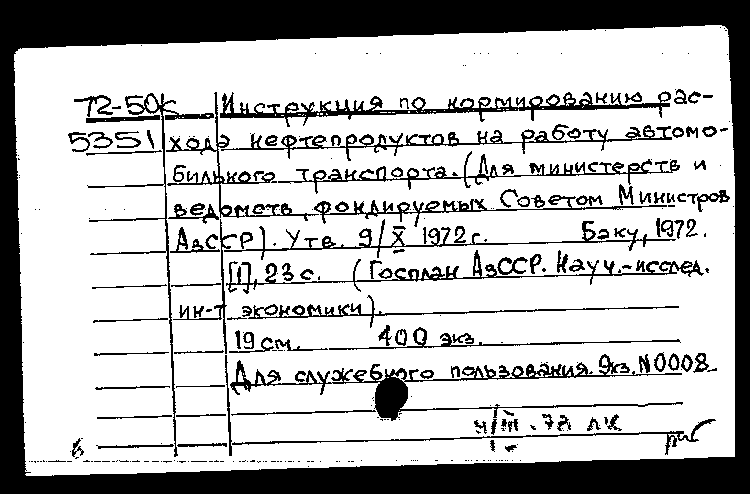 72-50к Инструкция по нормированию рас-
5351 хода нефтепродуктов на работу автомо-
бильного транспорта. (Для министерств и
ведомств, фондируемых Советом Министров
АзССР). Утв. 9/X 1972 г. Баку, 1972.
[1], 23 с. (Госплан АзССР. Науч.-исслед.
ин-т экономики).
19 см. 400 экз.
Для служебного пользования. Экз. N 0008